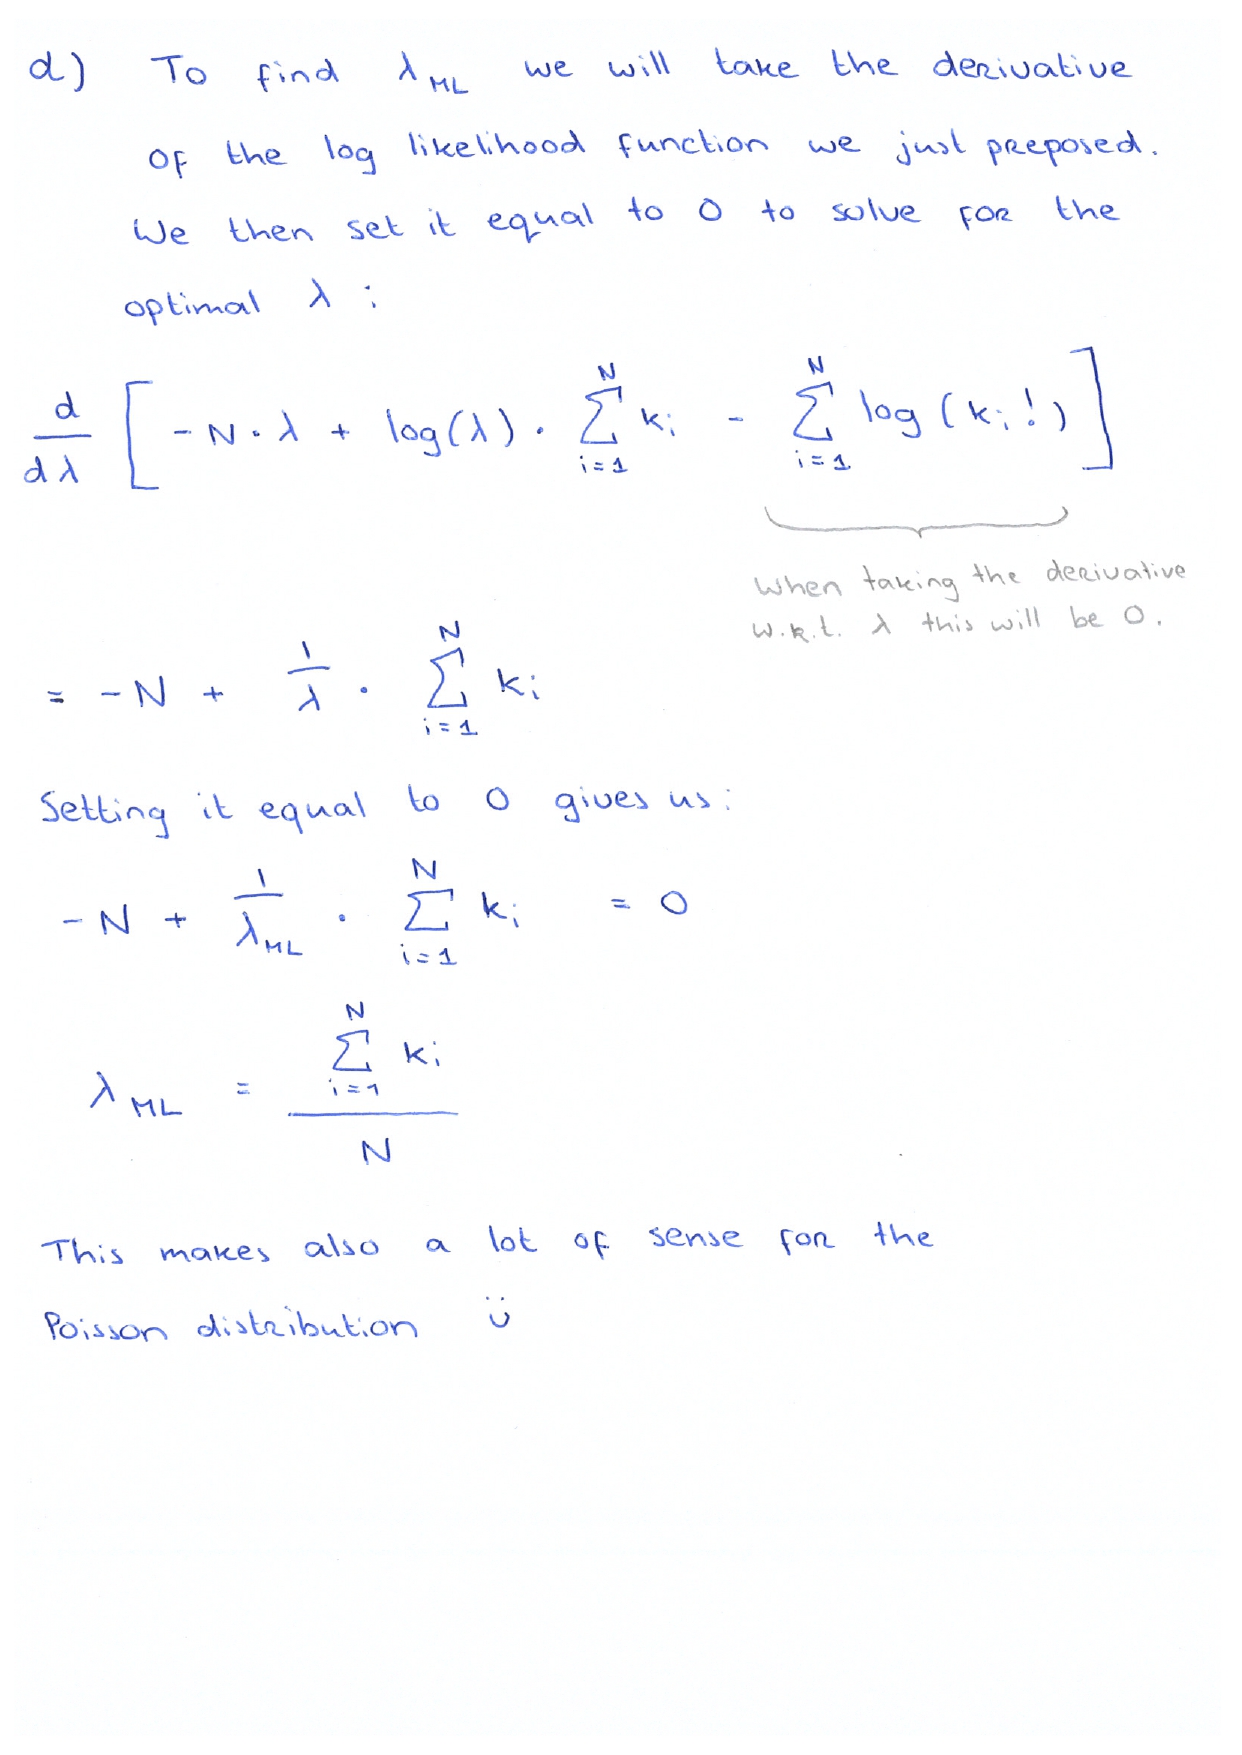 d) To find λ_ML we will take the derivative
of the log likelihood function we just preposed.
We then set it equal to 0 to solve for the
optimal λ :
d/dλ [ -N·λ + log(λ) · ∑_{i=1}^{N} k_i - ∑_{i=1}^{N} log(k_i!) ]
When taking the derivative
w.r.t. λ this will be 0.
= -N + 1/λ · ∑_{i=1}^{N} k_i
Setting it equal to 0 gives us:
-N + 1/λ_ML · ∑_{i=1}^{N} k_i = 0
λ_ML = ∑_{i=1}^{N} k_i / N
This makes also a lot of sense for the
Poisson distribution ü